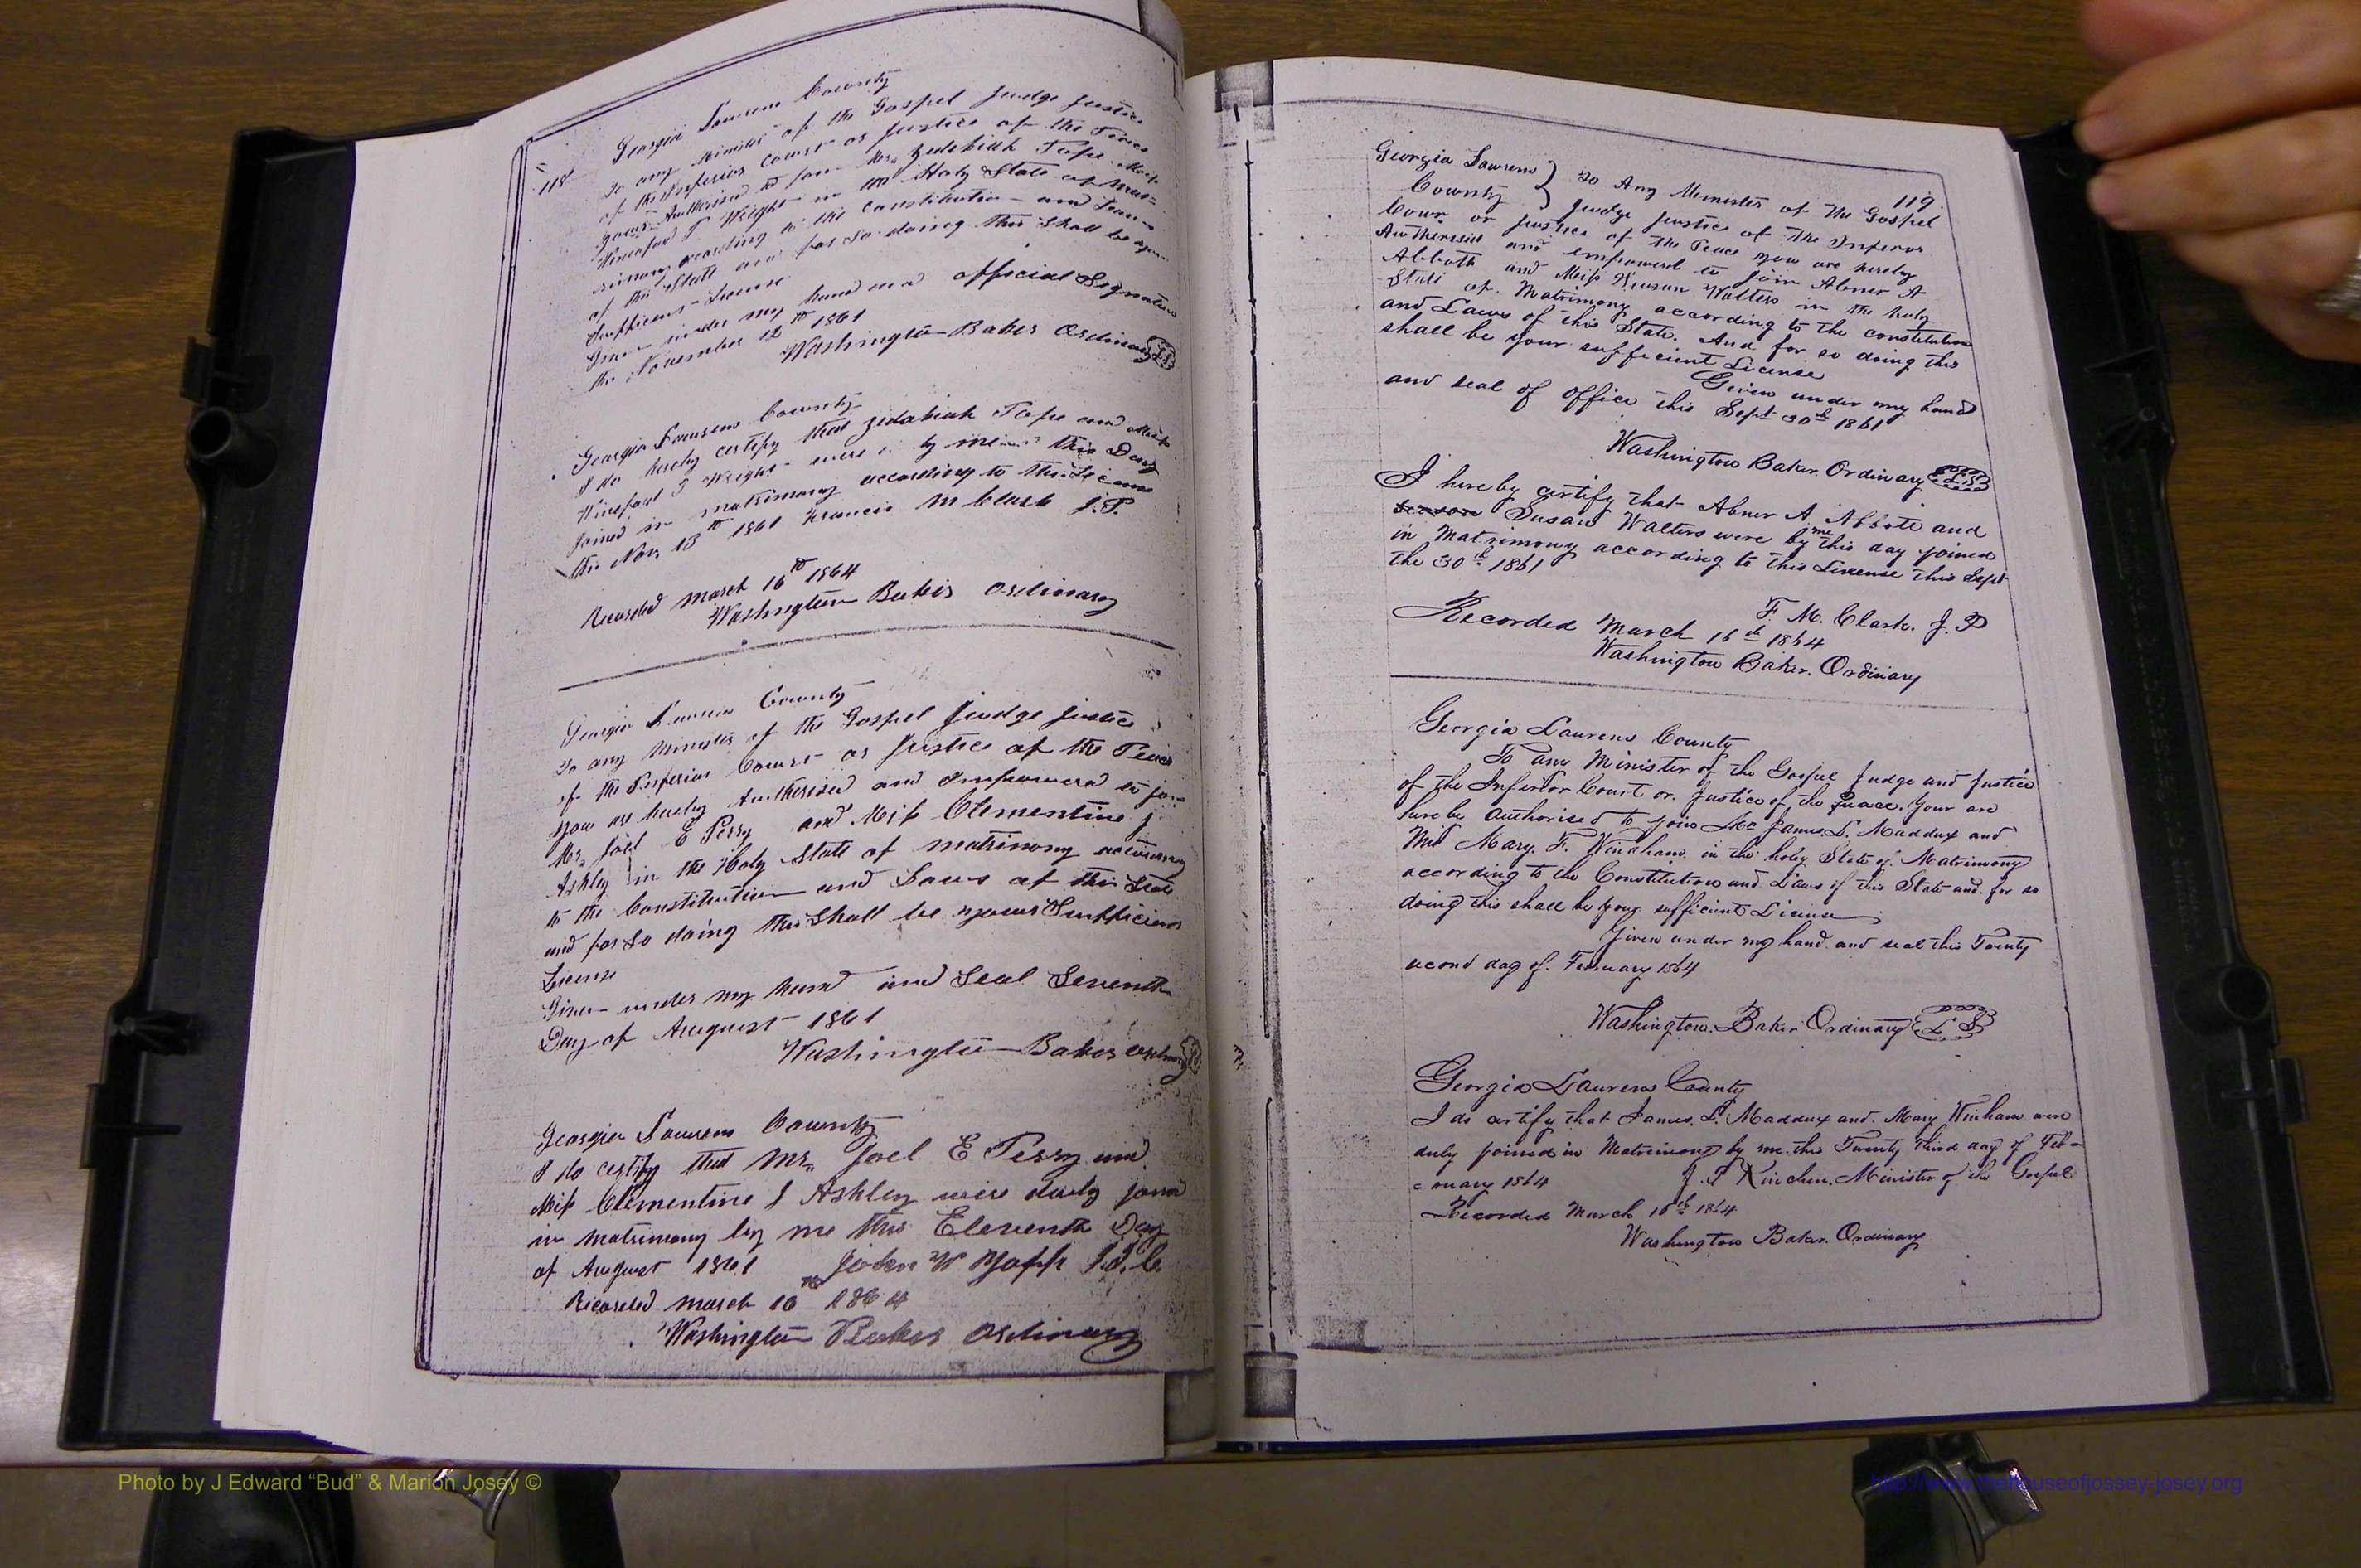 118
Georgia Laurens County
To any Minister of the Gospel Judge Justice
of the Inferior Court or Justice of the Peace
you are Authorised to join Mr. Zedekiah Pope Miss
Wineford J Wright in the Holy State of Mat=
rimony according to the constitution and Laws
of this State and for so doing this Shall be your
Sufficient License
Given under my hand and official Signature
this November 12th 1861
Washington Baker Ordinary LS
Georgia Laurens County
I do hereby certify that Zedakiah Pope and Miss
Wineford J Wright were by me this Day
joined in matrimony according to this License
this Nov 13th 1861 Francis M Clark J.P.
Recorded March 16th 1864
Washington Baker Ordinary
Georgia Laurens County
To any Minister of the Gospel Judge Justice
of the Inferior Court or Justice of the Peace
you are hereby Authorised and Impowered to join
Mr. Joel E Perry and Miss Clementine J
Ashley in the Holy State of matrimony according
to the Constitution and Laws of this State
and for So doing this Shall be your Sufficient
License
Given under my hand and Seal Seventh
Day of August 1861
Washington Baker Ordinary
Georgia Laurens County
I do certify that Mr. Joel E Perry and
Miss Clementine J Ashley were duly joind
in matrimony by me this Eleventh Day
of August 1861 John W Yopp J.I.C.
Recorded March 16th 1864
Washington Baker Ordinary
119
Georgia Laurens } To Any Menister of the Gospel
County } Judge Justice of the Inferor
Cour or Justice of the Peace you are hereby
Autherisid and empowerd to join Abner A
Abbott and Miss Susan Walters in the holy
State of Matrimony according to the constitution
and Laws of this State. And for so doing this
shall be your sufficient License
Given under my hand
and seal of office this Sept 30th 1861
Washington Baker Ordinary LS
I hereby certify that Abner A Abbott and
Susan Walters were by me this day joined
in Matrimony according to this License this Sept
the 30th 1861
F. M. Clark. J. P
Recorded March 16th 1864
Washington Baker. Ordinary
Georgia Laurens County
To any Minister of the Gospel Judge and Justice
of the Inferior Court or Justice of the Peace. Your are
hereby authorised to join Mr James L. Maddux and
Miss Mary. F. Windham in the holy State of Matrimony
according to the Constitution and Laws of this State and for so
doing this shall be your sufficient License
Given under my hand and seal this Twenty
second day of February 1864
Washington Baker Ordinary L S
Georgia Laurens County
I do certify that James L. Maddux and Mary Winham were
duly joined in Matrimony by me this Twenty third day of Feb=
=ruary 1864 J. T Kinchen. Minister of the Gospel
Recorded March 16th 1864
Washington Baker. Ordinary
Photo by J Edward “Bud” & Marion Josey ©
http://www.thehouseofjossey-josey.org